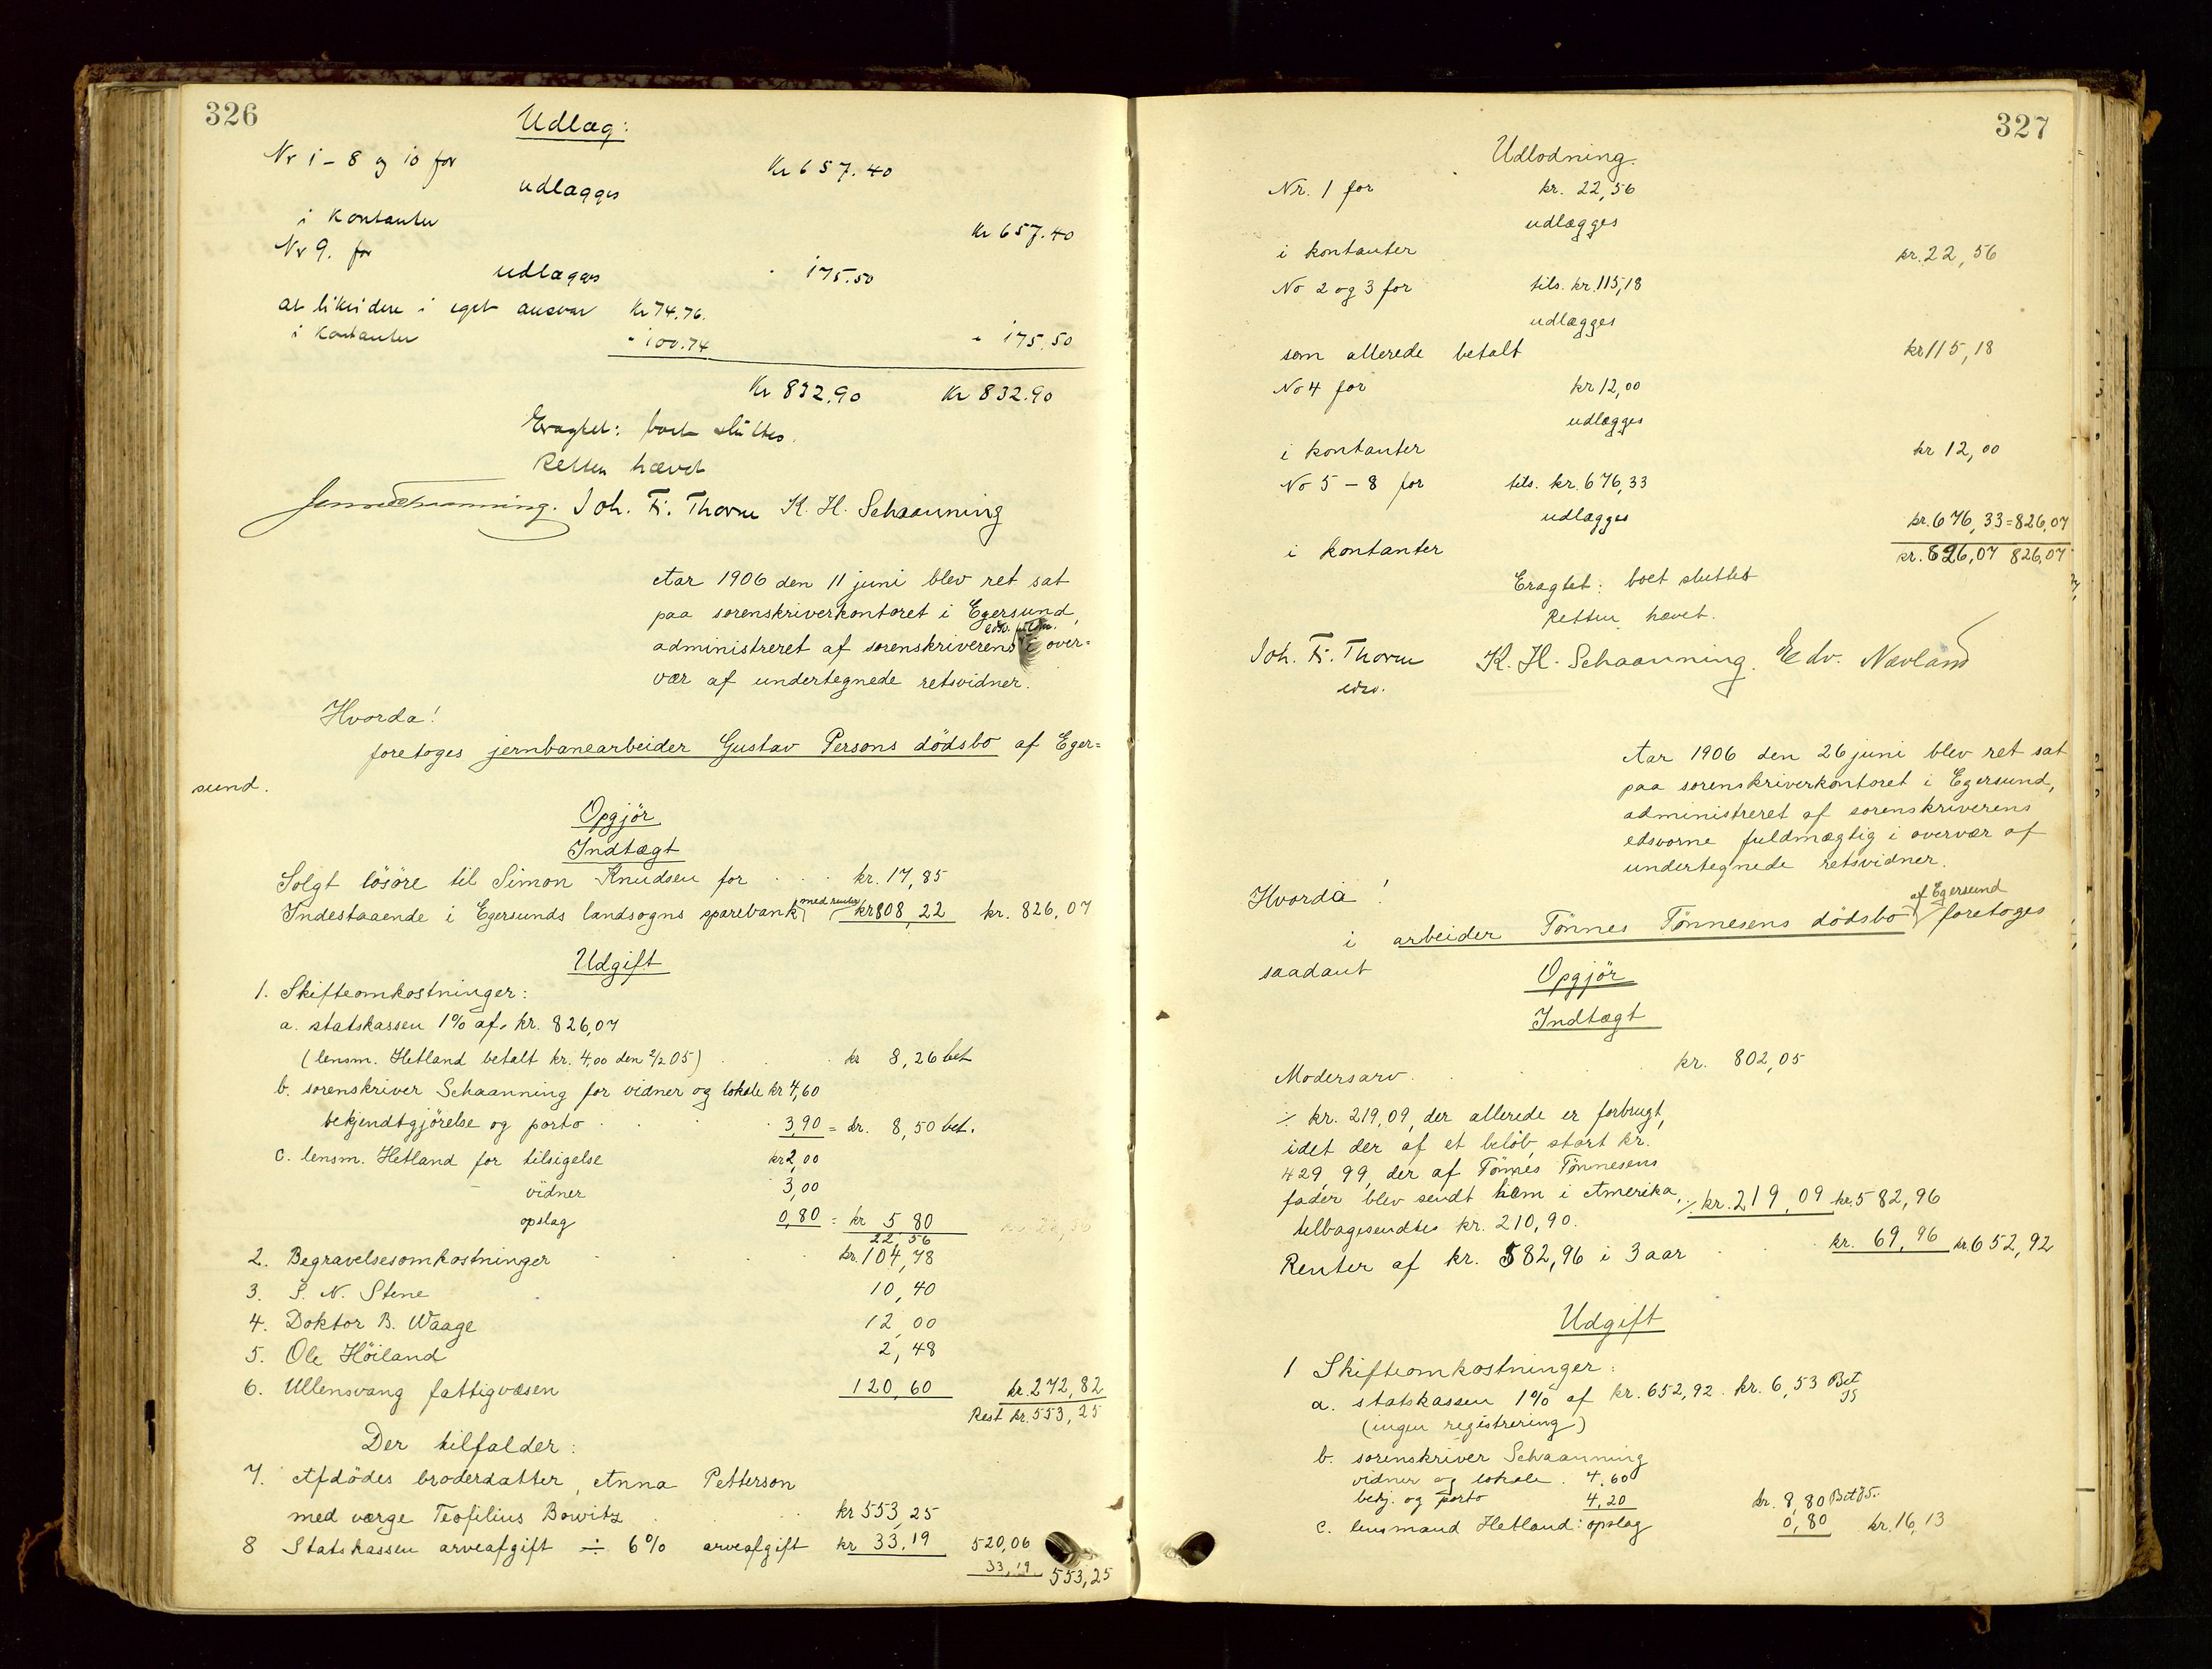 326
Udlæg:
Nr 1 - 8 og 10 for Kr 657.40
udlægges
i kontanter Kr 657.40
Nr 9. for - 175.50
udlægges
at likvidere i eget ansvar Kr 74.76.
i kontanter - 100.74 - 175.50
Kr 832.90 Kr 832.90
Eragtet: boet sluttes.
Retten hævet
Joh. Fr. Thorne K. H. Schaanning
Aar 1906 den 11 juni blev ret sat
paa sorenskriverkontoret i Egersund,
administreret af sorenskriverens edsv. i over=
vær af undertegnede retsvidner.
Hvorda!
foretoges jernbanearbeider Gustav Persons dödsbo af Eger=
sund.
Opgjör
Indtægt
Solgt lösöre til Simon Knudsen for kr. 17,85
Indestaaende i Egersunds landsogns sparebank med renter kr 808,22 kr. 826,07
Udgift
1. Skifteomkostninger:
a. statskassen 1% af kr. 826,07
(lensm. Hetland betalt kr. 4,00 den 2/2 05) kr 8,26 bet
b. sorenskriver Schaanning for vidner og lokale kr 4,60
bekjendtgjörelse og porto 3,90 = kr. 8,50 bet.
c. lensm. Hetland for tilsigelse kr 2,00
vidner 3,00
opslag 0,80 = kr 5 80
22,56
2. Begravelsesomkostninger kr. 104,78
3. S. N. Stene 10,40
4. Doktor B. Waage 12,00
5. Ole Höiland 2,48
6. Ullensvang fattigvæsen 120,60 kr. 272,82
Rest kr. 553,25
Der tilfalder:
7. Afdödes broderdatter, Anna Petterson
med værge Teofilius Bowitz kr 553,25
8 Statskassen arveafgift ÷ 6% arveafgift kr 33,19 520,06
33,19 553,25
327
Udlodning.
Nr. 1 for kr. 22,56
udlægges
i kontanter kr. 22,56
No 2 og 3 for tils. kr. 115,18
udlægges
som allerede betalt kr 115,18
No 4 for kr 12,00
udlægges
i kontanter kr 12,00
No 5 - 8 for tils. kr. 676,33
udlægges kr. 676,33 = 826,07
i kontanter kr. 826,07 826,07
Eragtet: boet sluttet
Retten hævet.
Joh. Fr. Thorne K. H. Schaanning. Edv. Nævland
edsv.
Aar 1906 den 26 juni blev ret sat
paa sorenskriverkontoret i Egersund,
administreret af sorenskriverens
edsvorne fuldmægtig i overvær af
undertegnede retsvidner.
Hvorda!
i arbeider Tönnes Tönnesens dödsbo af Egersund foretoges
saadant
Opgjör
Indtægt
Modersarv kr. 802,05
÷ kr. 219,09, der allerede er forbrugt,
idet der af et belöb, stort kr.
429,99, der af Tönnes Tönnesens
fader blev sendt ham i Amerika, ÷ kr. 219,09 kr. 582,96
tilbagesendtes kr. 210,90.
Renter af kr. 582,96 i 3 aar kr. 69,96 kr 652,92
Udgift
1 Skifteomkostninger:
a. statskassen 1% af kr. 652,92. kr. 6,53 Bet JS
(ingen registrering)
b. sorenskriver Schaanning
vidner og lokale. 4,60
bekj. og porto 4,20 kr. 8,80 Bet JS.
c. lensmand Hetland: opslag 0,80 kr. 16,13